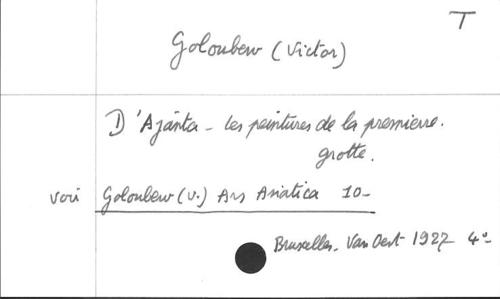 T
Goloubew (Victor)
D'Ajanta - Les peintures de la premiere.
grotte.
voir Goloubew (V.) Ars Asiatica 10-
Bruxelles. Van Oest 1927 4°